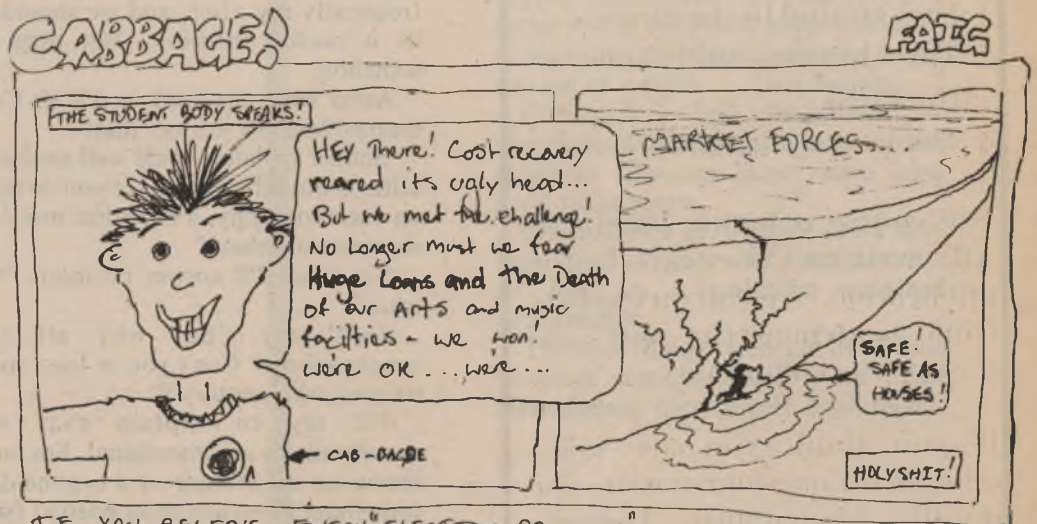 CABBAGE!
FAIG
THE STUDENT BODY SPEAKS!
HEY There! Cost recovery
reared its ugly head...
But we met the challenge!
No Longer must we fear
Huge Loans and the Death
of our Arts and music
facilties - we won!
we're OK ... we're ...
CAB-BADGE
MARKET FORCES...
SAFE.
SAFE AS
HOUSES!
HOLY SHIT!
IF YOU BELIEVE EVERY